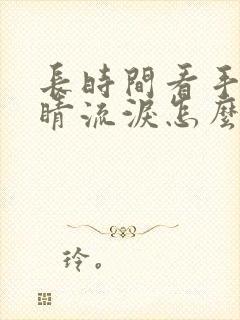 長時間看手
睛流淚怎麼
玲。